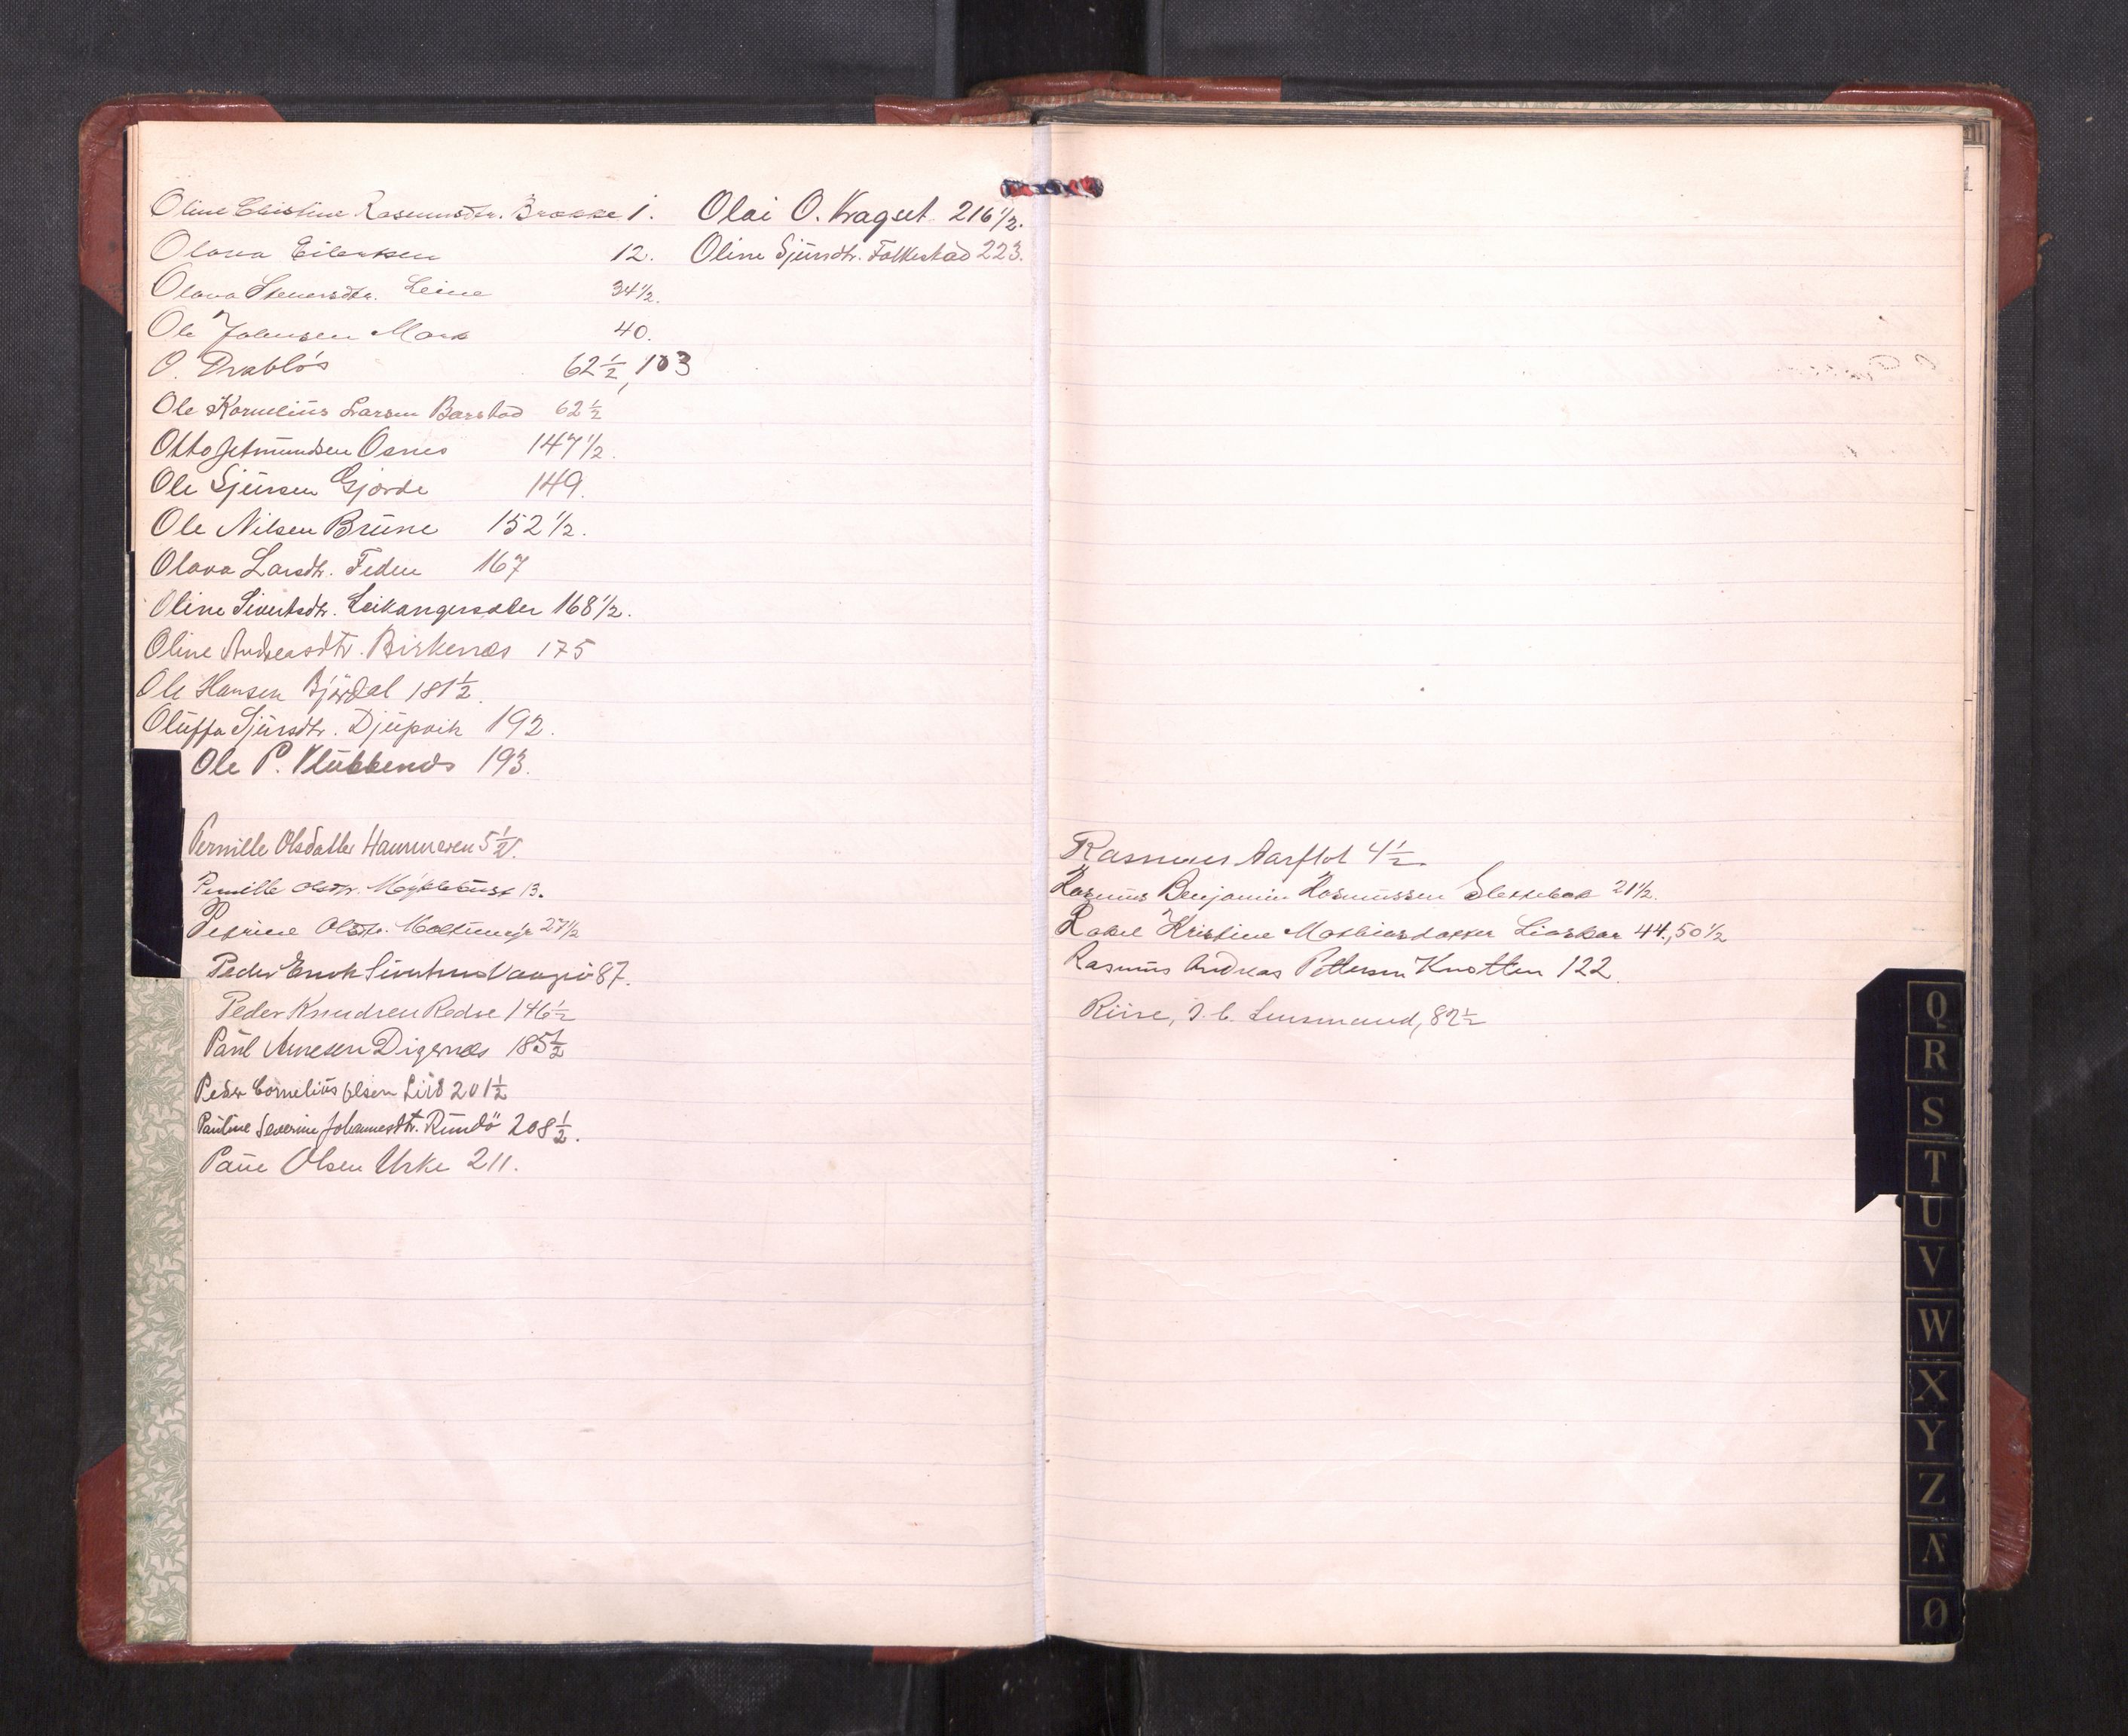 Oline Christine Rasmusdtr. Brække 1.
Olava Eilertsen 12.
Olava Steinersdtr. Leine 34½.
Ole Johnsen Mork 40.
O. Drabløs 62½, 103
Ole Kornelius Larsen Barstad 62½
Otto Jetmundsen Osnes 147½.
Ole Sjursen Gjørde 149.
Ole Nilsen Brune 152½.
Olava Larsdtr. Feden 167
Oline Sivertsdtr. Leikangersæter 168½.
Oline Andreasdtr. Birkenæs 175
Ole Hansen Bjørdal 181½.
Oluffa Sjursdtr. Djupvik 192.
Ole P. Klubbenes 193.
Olai O. Kragset 216½.
Oline Sjursdtr. Folkestad 223.
Pernille Olsdatter Hammeren 5½.
Pernille Olsdtr. Myklebust 13.
Petrine Olsdtr. 27½
Peder Enok Sivertsen 87.
Peder Knudsen Redse 146½
Paul Arnesen Digernæs 185½
Peder Cornelius Olsen Liid 201½
Pauline Severine Johannesdtr. Rundö 208½.
Paue Olsen Urke 211.
Rasmus Aarflot 4½
Rasmus Benjamin Rasmussen Slettebak 21½.
Rakel Kristine Mathiasdatter Liaskar 44, 50½
Rasmus Andreas Pettersen Knotten 122.
Riise, J. C. Lensmand, 82½
Q
R
S
T
U
V
W
X
Y
Z
Ø